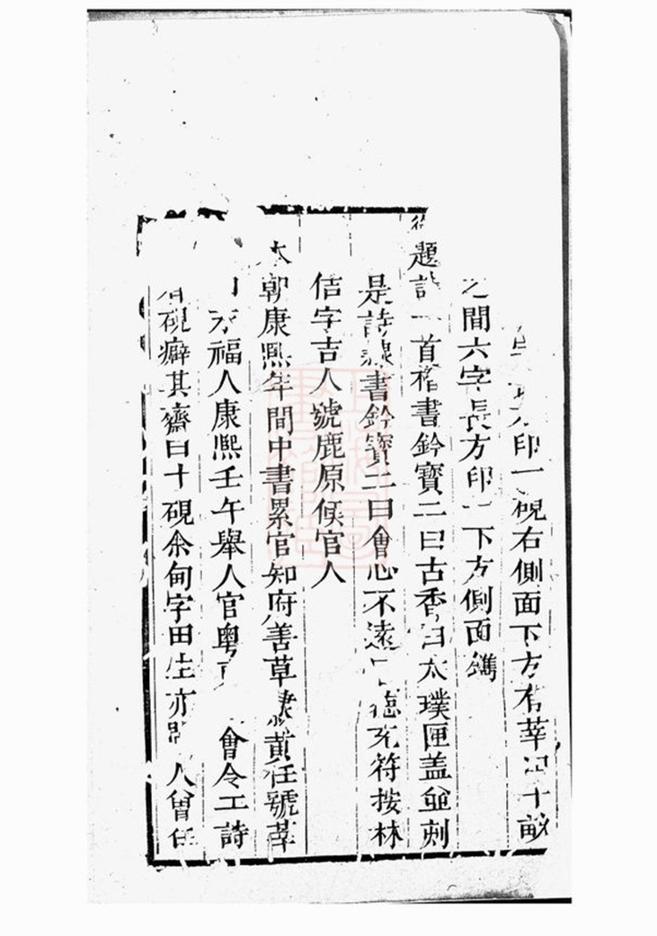 印一硯右側面下方有莘田十畝
之間六字長方印一下方側面鐫
題詩一首楷書鈐寶二曰古香曰太璞匣蓋並刻
是詩隸書鈐寶二曰會心不遠曰德充符按林
佶字吉人號鹿原候官人
本朝康熙年間中書累官知府善草隸黃任號莘
永福人康熙壬午舉人官粵會令工詩
有硯癖其齋曰十硯余甸字田生亦人曾任